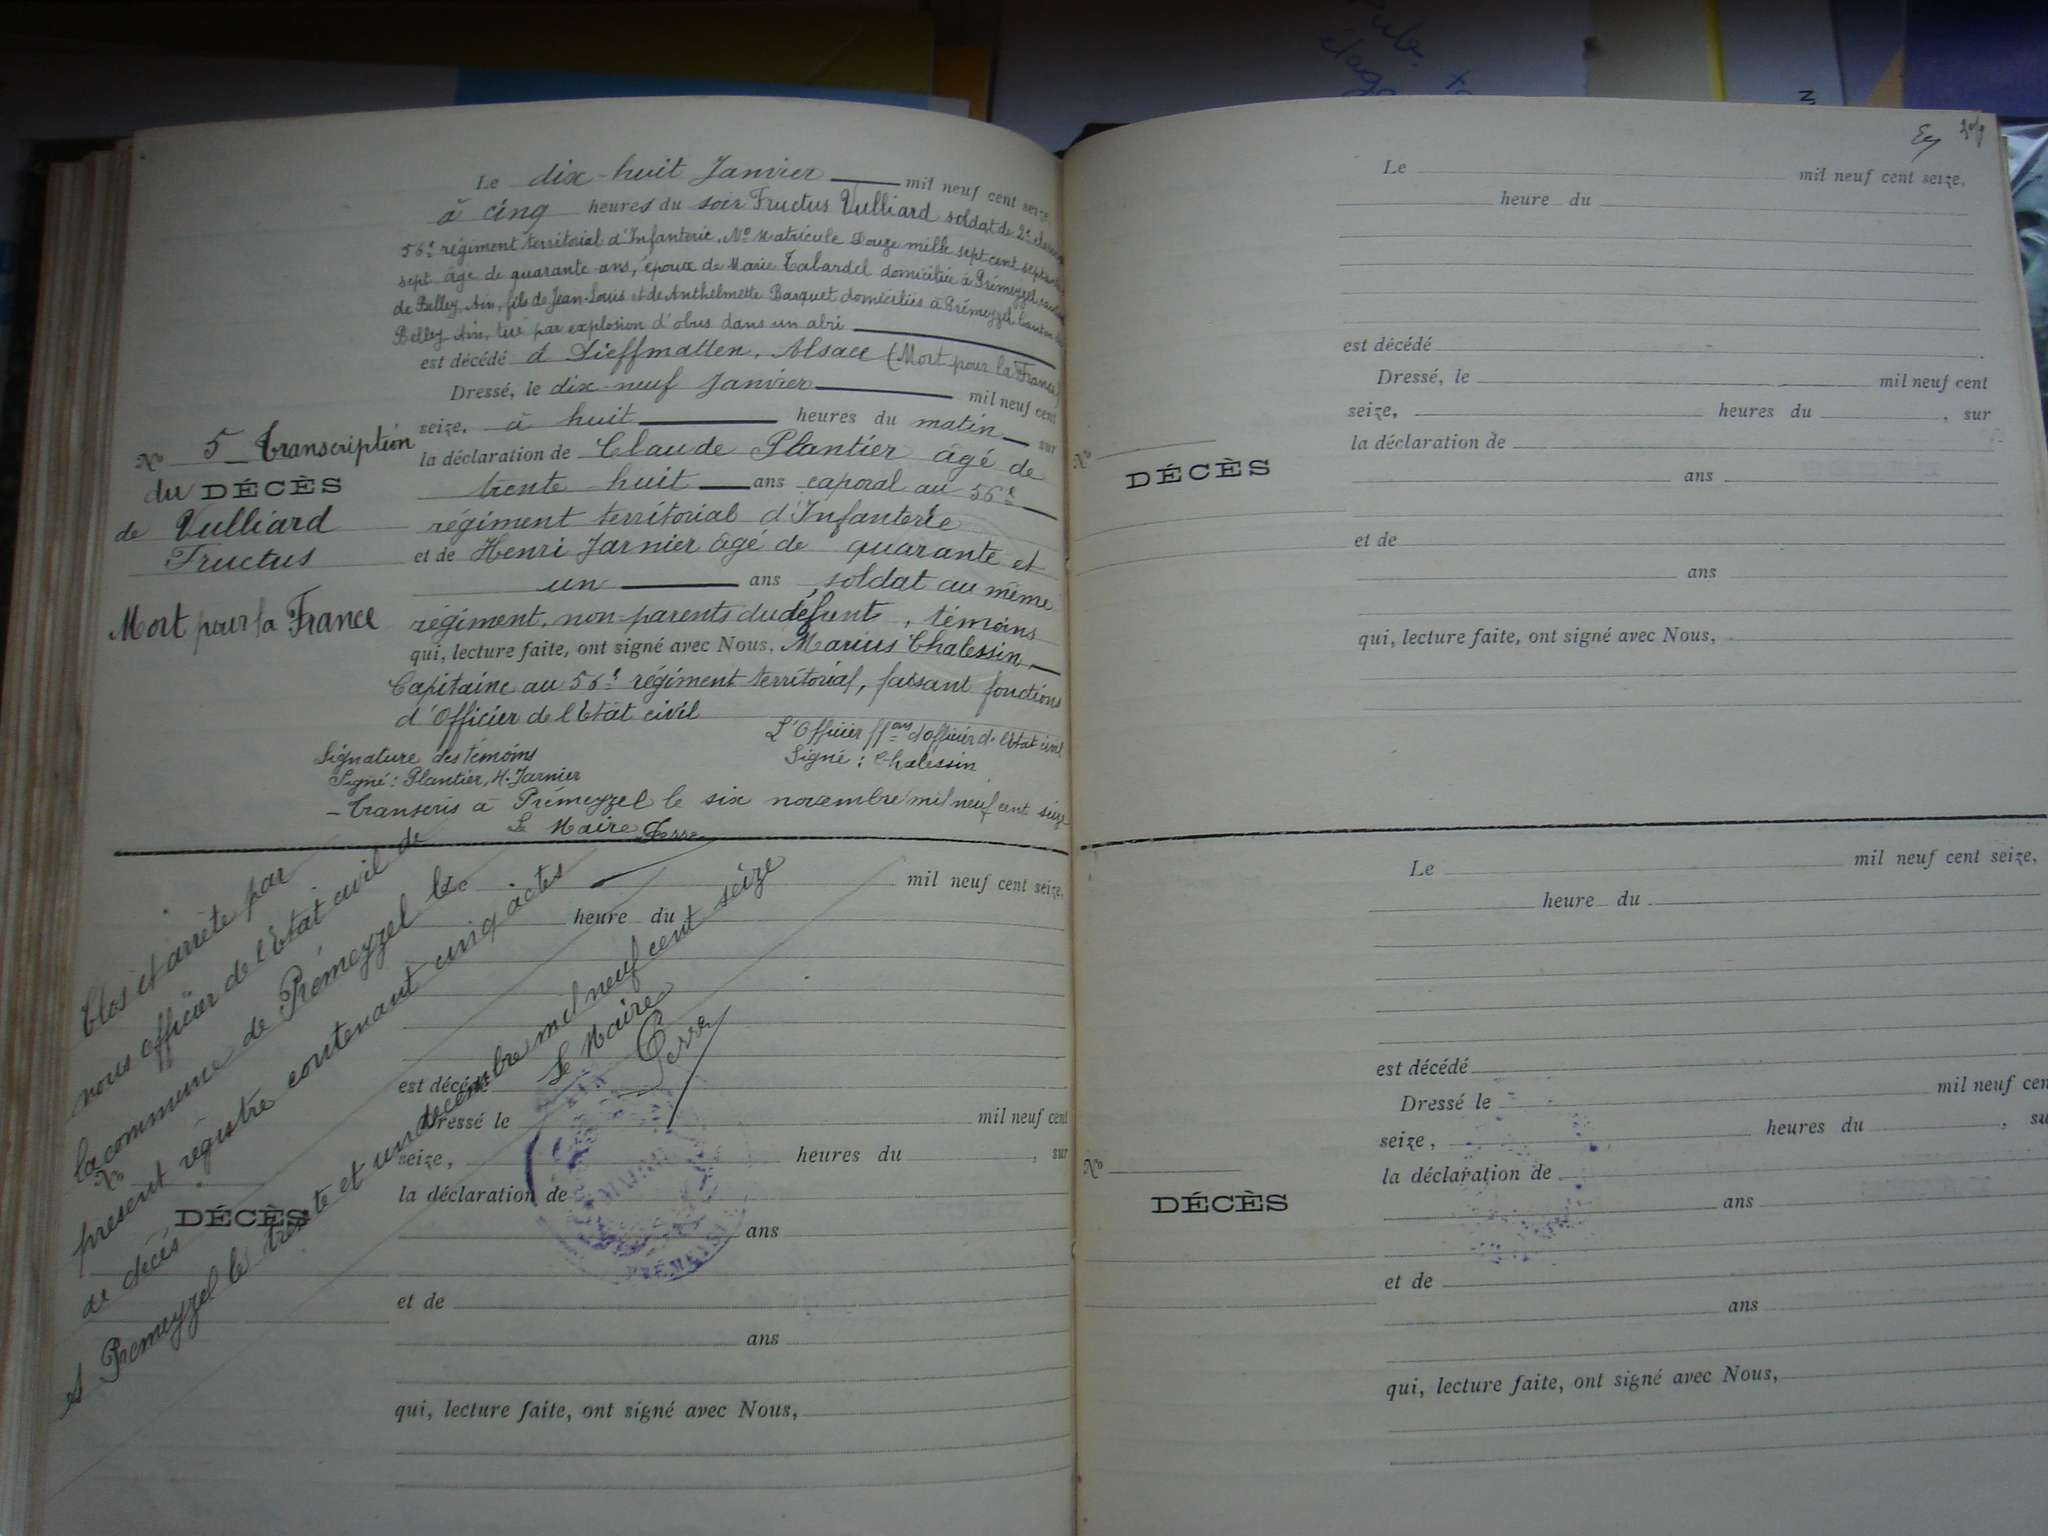 Le dix-huit Janvier mil neuf cent seize,
à cinq heures du soir Fructus Vulliard soldat de 2e classe
56e régiment territorial d'Infanterie, No Matricule Douze mille sept cent
sept âgé de quarante ans, époux de Marie Tabardel domiciliée à Prémeyzel
de Belley, Ain, fils de Jean-Louis et de Anthelmette Barquet domiciliés à Prémeyzel Canton
Belley, Ain, tué par explosion d'obus dans un abri
est décédé à Dieffmatten, Alsace (Mort pour la France)
Dressé, le dix-neuf Janvier mil neuf cent
seize, à huit heures du matin sur
la déclaration de Claude Plantier âgé de
trente huit ans caporal au 56e
régiment territorial d'Infanterie
et de Henri Jarnier âgé de quarante et
un ans, soldat au même
régiment, non parents du défunt, témoins
qui, lecture faite, ont signé avec Nous, Marius Chalessin
Capitaine au 56e régiment territorial, faisant fonctions
d'Officier de l'Etat civil
No 5 Transcription
du DÉCÈS
de Vulliard
Fructus
Mort pour la France
L'Officier ff ons d'officier de l'Etat civil
Signé : Chalessin
Signature des témoins
Signé : Plantier, H. Jarnier
- Transcris à Prémeyzel le six novembre mil neuf cent seize
Le Maire
Clos et arrêté par
nous officier de l'Etat civil de
la commune de Prémeyzel le
présent régistre contenant cinq actes
de décès
A Prémeyzel le trente et un décembre mil neuf cent seize
Le Maire
Le mil neuf cent seize,
heure du
est décédé
Dressé le mil neuf cent
seize, heures du , sur
la déclaration de
ans
No
DÉCÈS
et de
ans
qui, lecture faite, ont signé avec Nous,
Le mil neuf cent seize,
heure du
est décédé
Dressé, le mil neuf cent
seize, heures du , sur
la déclaration de
No
DÉCÈS
ans
et de
ans
qui, lecture faite, ont signé avec Nous,
Le mil neuf cent seize,
heure du
est décédé
Dressé le mil neuf cen
seize, heures du , su
la déclaration de
No
DÉCÈS
ans
et de
ans
qui, lecture faite, ont signé avec Nous,